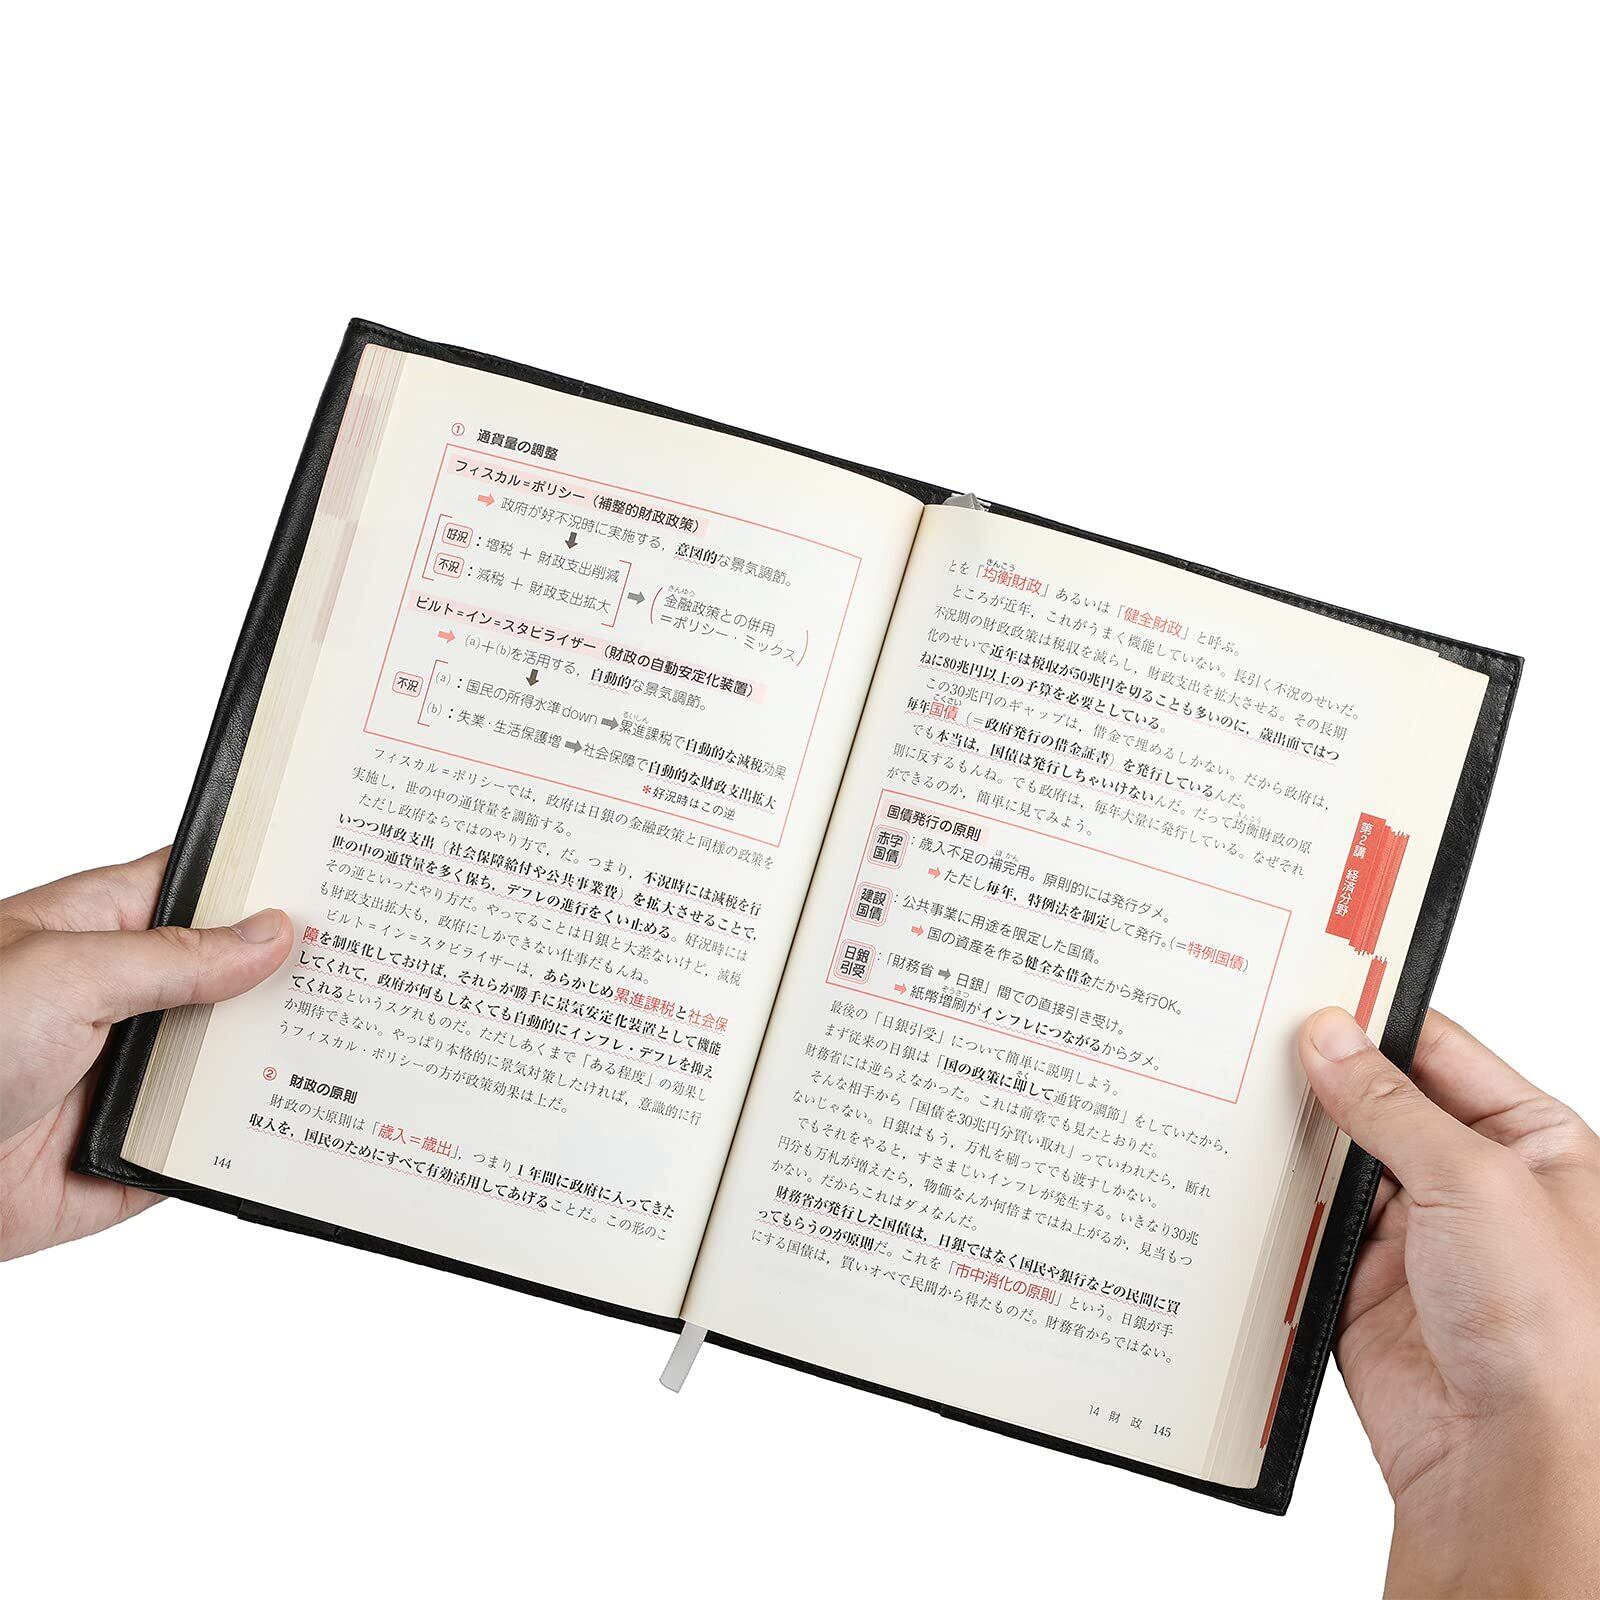 ① 通貨量の調整
フィスカル＝ポリシー（補整的財政政策）
➡ 政府が好不況時に実施する，意図的な景気調節。
好況：増税 ＋ 財政支出削減
不況：減税 ＋ 財政支出拡大
➡
きんゆう
（金融政策との併用
＝ポリシー・ミックス）
ビルト＝イン＝スタビライザー（財政の自動安定化装置）
➡ (a)＋(b)を活用する，自動的な景気調節。
不況
るいしん
(a)：国民の所得水準down➡累進課税で自動的な減税効果
(b)：失業・生活保護増➡社会保障で自動的な財政支出拡大
＊好況時はこの逆
フィスカル＝ポリシーでは，政府は日銀の金融政策と同様の政策を
実施し，世の中の通貨量を調節する。
ただし政府ならではのやり方で，だ。つまり，不況時には減税を行
いつつ財政支出（社会保障給付や公共事業費）を拡大させることで，
世の中の通貨量を多く保ち，デフレの進行をくい止める。好況時には
その逆といったやり方だ。やってることは日銀と大差ないけど，減税
も財政支出拡大も，政府にしかできない仕事だもんね。
ビルト＝イン＝スタビライザーは，あらかじめ累進課税と社会保
障を制度化しておけば，それらが勝手に景気安定化装置として機能
してくれて，政府が何もしなくても自動的にインフレ・デフレを抑え
てくれるというスグれものだ。ただしあくまで「ある程度」の効果し
か期待できない。やっぱり本格的に景気対策したければ，意識的に行
うフィスカル・ポリシーの方が政策効果は上だ。
② 財政の原則
財政の大原則は「歳入＝歳出」，つまり1年間に政府に入ってきた
収入を，国民のためにすべて有効活用してあげることだ。この形のこ
144
きんこう
とを「均衡財政」あるいは「健全財政」と呼ぶ。
ところが近年，これがうまく機能していない。長引く不況のせいだ。
不況期の財政政策は税収を減らし，財政支出を拡大させる。その長期
化のせいで近年は税収が50兆円を切ることも多いのに，歳出面ではつ
ねに80兆円以上の予算を必要としている。
この30兆円のギャップは，借金で埋めるしかない。だから政府は，
こくさい
毎年国債（＝政府発行の借金証書）を発行しているんだ。
でも本当は，国債は発行しちゃいけないんだ。だって均衡財政の原
きんこう
則に反するもんね。でも政府は，毎年大量に発行している。なぜそれ
ができるのか，簡単に見てみよう。
国債発行の原則
ほかん
赤字国債：歳入不足の補完用。原則的には発行ダメ。
➡ただし毎年，特例法を制定して発行。（＝特例国債）
建設国債：公共事業に用途を限定した国債。
➡国の資産を作る健全な借金だから発行OK。
日銀引受：「財務省➡日銀」間での直接引き受け。
ぞうさつ
➡紙幣増刷がインフレにつながるからダメ。
最後の「日銀引受」について簡単に説明しよう。
そく
まず従来の日銀は「国の政策に即して通貨の調節」をしていたから，
財務省には逆らえなかった。これは前章でも見たとおりだ。
そんな相手から「国債を30兆円分買い取れ」っていわれたら，断れ
ないじゃない。日銀はもう，万札を刷ってでも渡すしかない。
でもそれをやると，すさまじいインフレが発生する。いきなり30兆
円分も万札が増えたら，物価なんか何倍まではね上がるか，見当もつ
かない。だからこれはダメなんだ。
財務省が発行した国債は，日銀ではなく国民や銀行などの民間に買
ってもらうのが原則だ。これを「市中消化の原則」という。日銀が手
にする国債は，買いオペで民間から得たものだ。財務省からではない。
14 財 政 145
第2講 経済分野